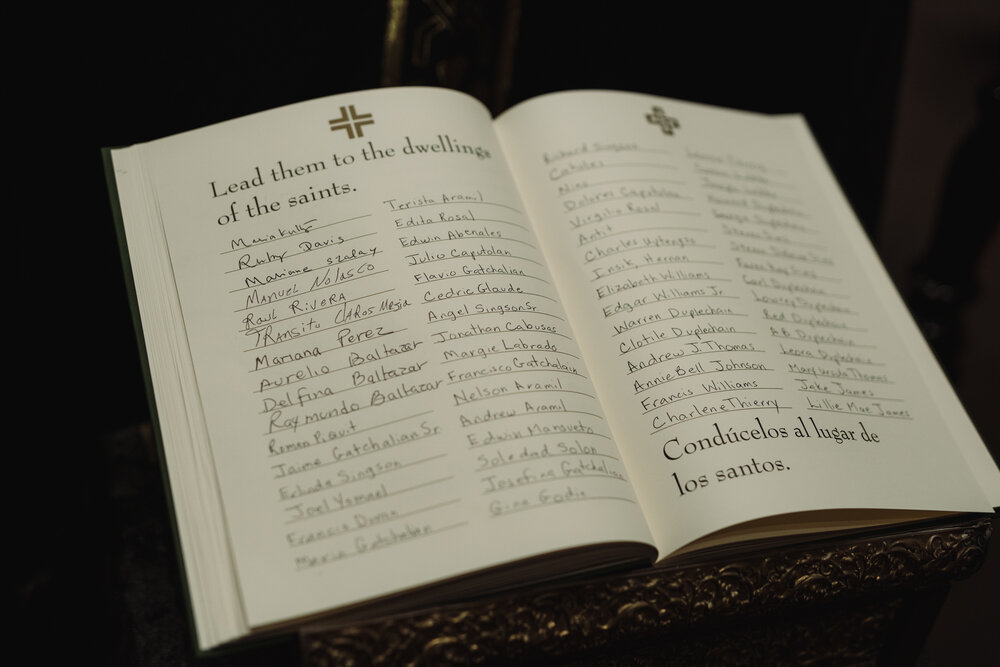 Lead them to the dwellings
of the saints.
Maria
Ruby Davis
Mariane Szalay
Manuel Nolasco
Raul Rivera
Transito Mejia
Mariana Perez
Aurelio Baltazar
Delfina Baltazar
Raymundo Baltazar
Roman Piquit
Jaime Gatchalian Sr.
Echada Singson
Joel Ysmael
Francis
Maria Gatchalian
Terista Aramil
Edita Rosal
Edwin Abenales
Julio Caputolan
Flavio Gatchalian
Cedric Glaude
Angel Singson Sr
Jonathan Cabusas
Margie Labrado
Francisco Gatchalain
Nelson Aramil
Andrew Aramil
Edwin Mansueto
Soledad Solon
Josefina Gatchalian
Gina Godin
Richard Singson
Nino
Dolores Caputolan
Virgilio Rosal
Charles Uytengsu
Insik, Hernan
Elizabeth Williams
Edgar Williams Jr.
Warren Duplechain
Clotile Duplechain
Andrew J. Thomas
Annie Bell Johnson
Francis Williams
Charlene Thierry
Carl Duplechain
Duplechain
Red Duplechain
A.B. Duplechain
Leora Duplechain
Mary Ursula Thomas
Jake James
Lillie Mae James
Condúcelos al lugar de
los santos.